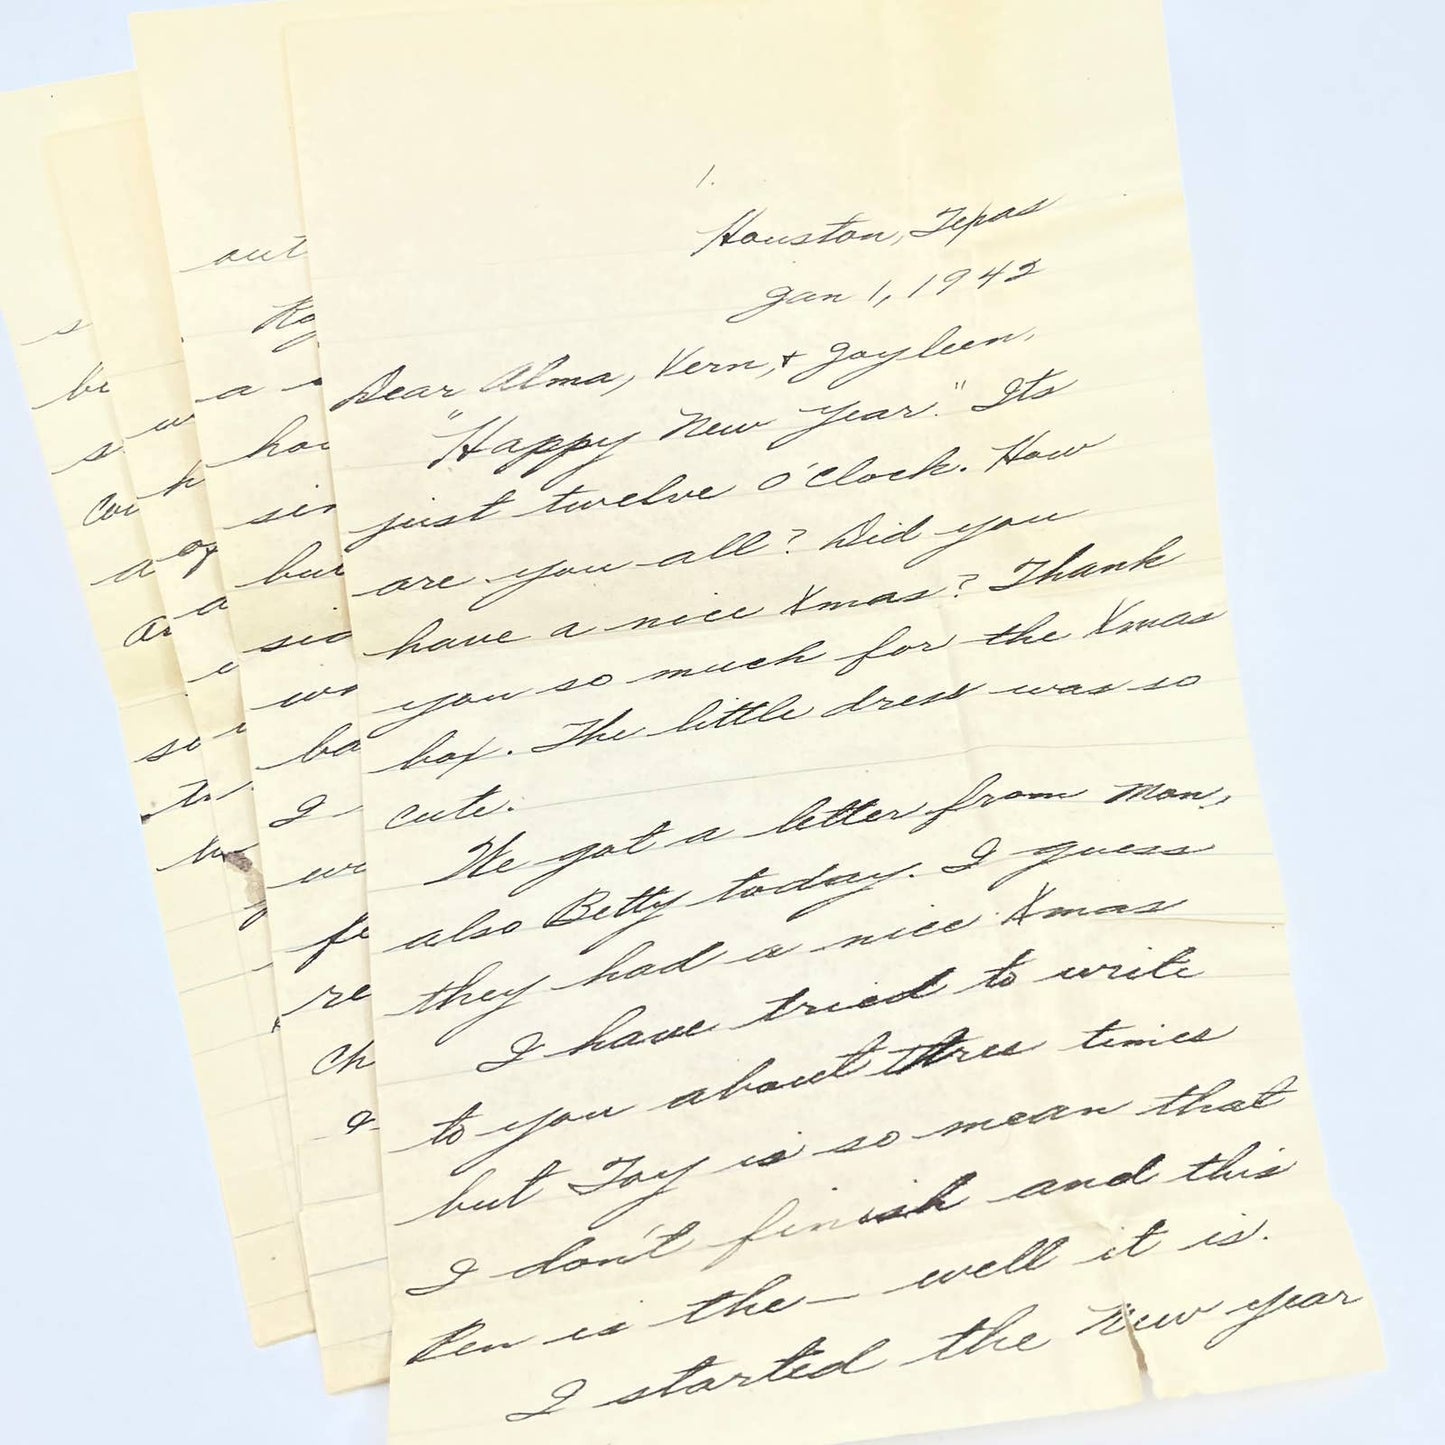 1.
Houston, Texas
Jan 1, 1942
Dear Alma, Vern, & Gayleen,
"Happy New Year." Its
just twelve o'clock. How
are you all? Did you
have a nice Xmas? Thank
you so much for the Xmas
box. The little dress was so
cute.
We got a letter from Mon,
also Betty today. I guess
they had a nice Xmas
I have tried to write
to you about three times
but Toy is so mean that
I don't finish and this
Pen is the— well it is.
I started the New year
out
a
I
be
&